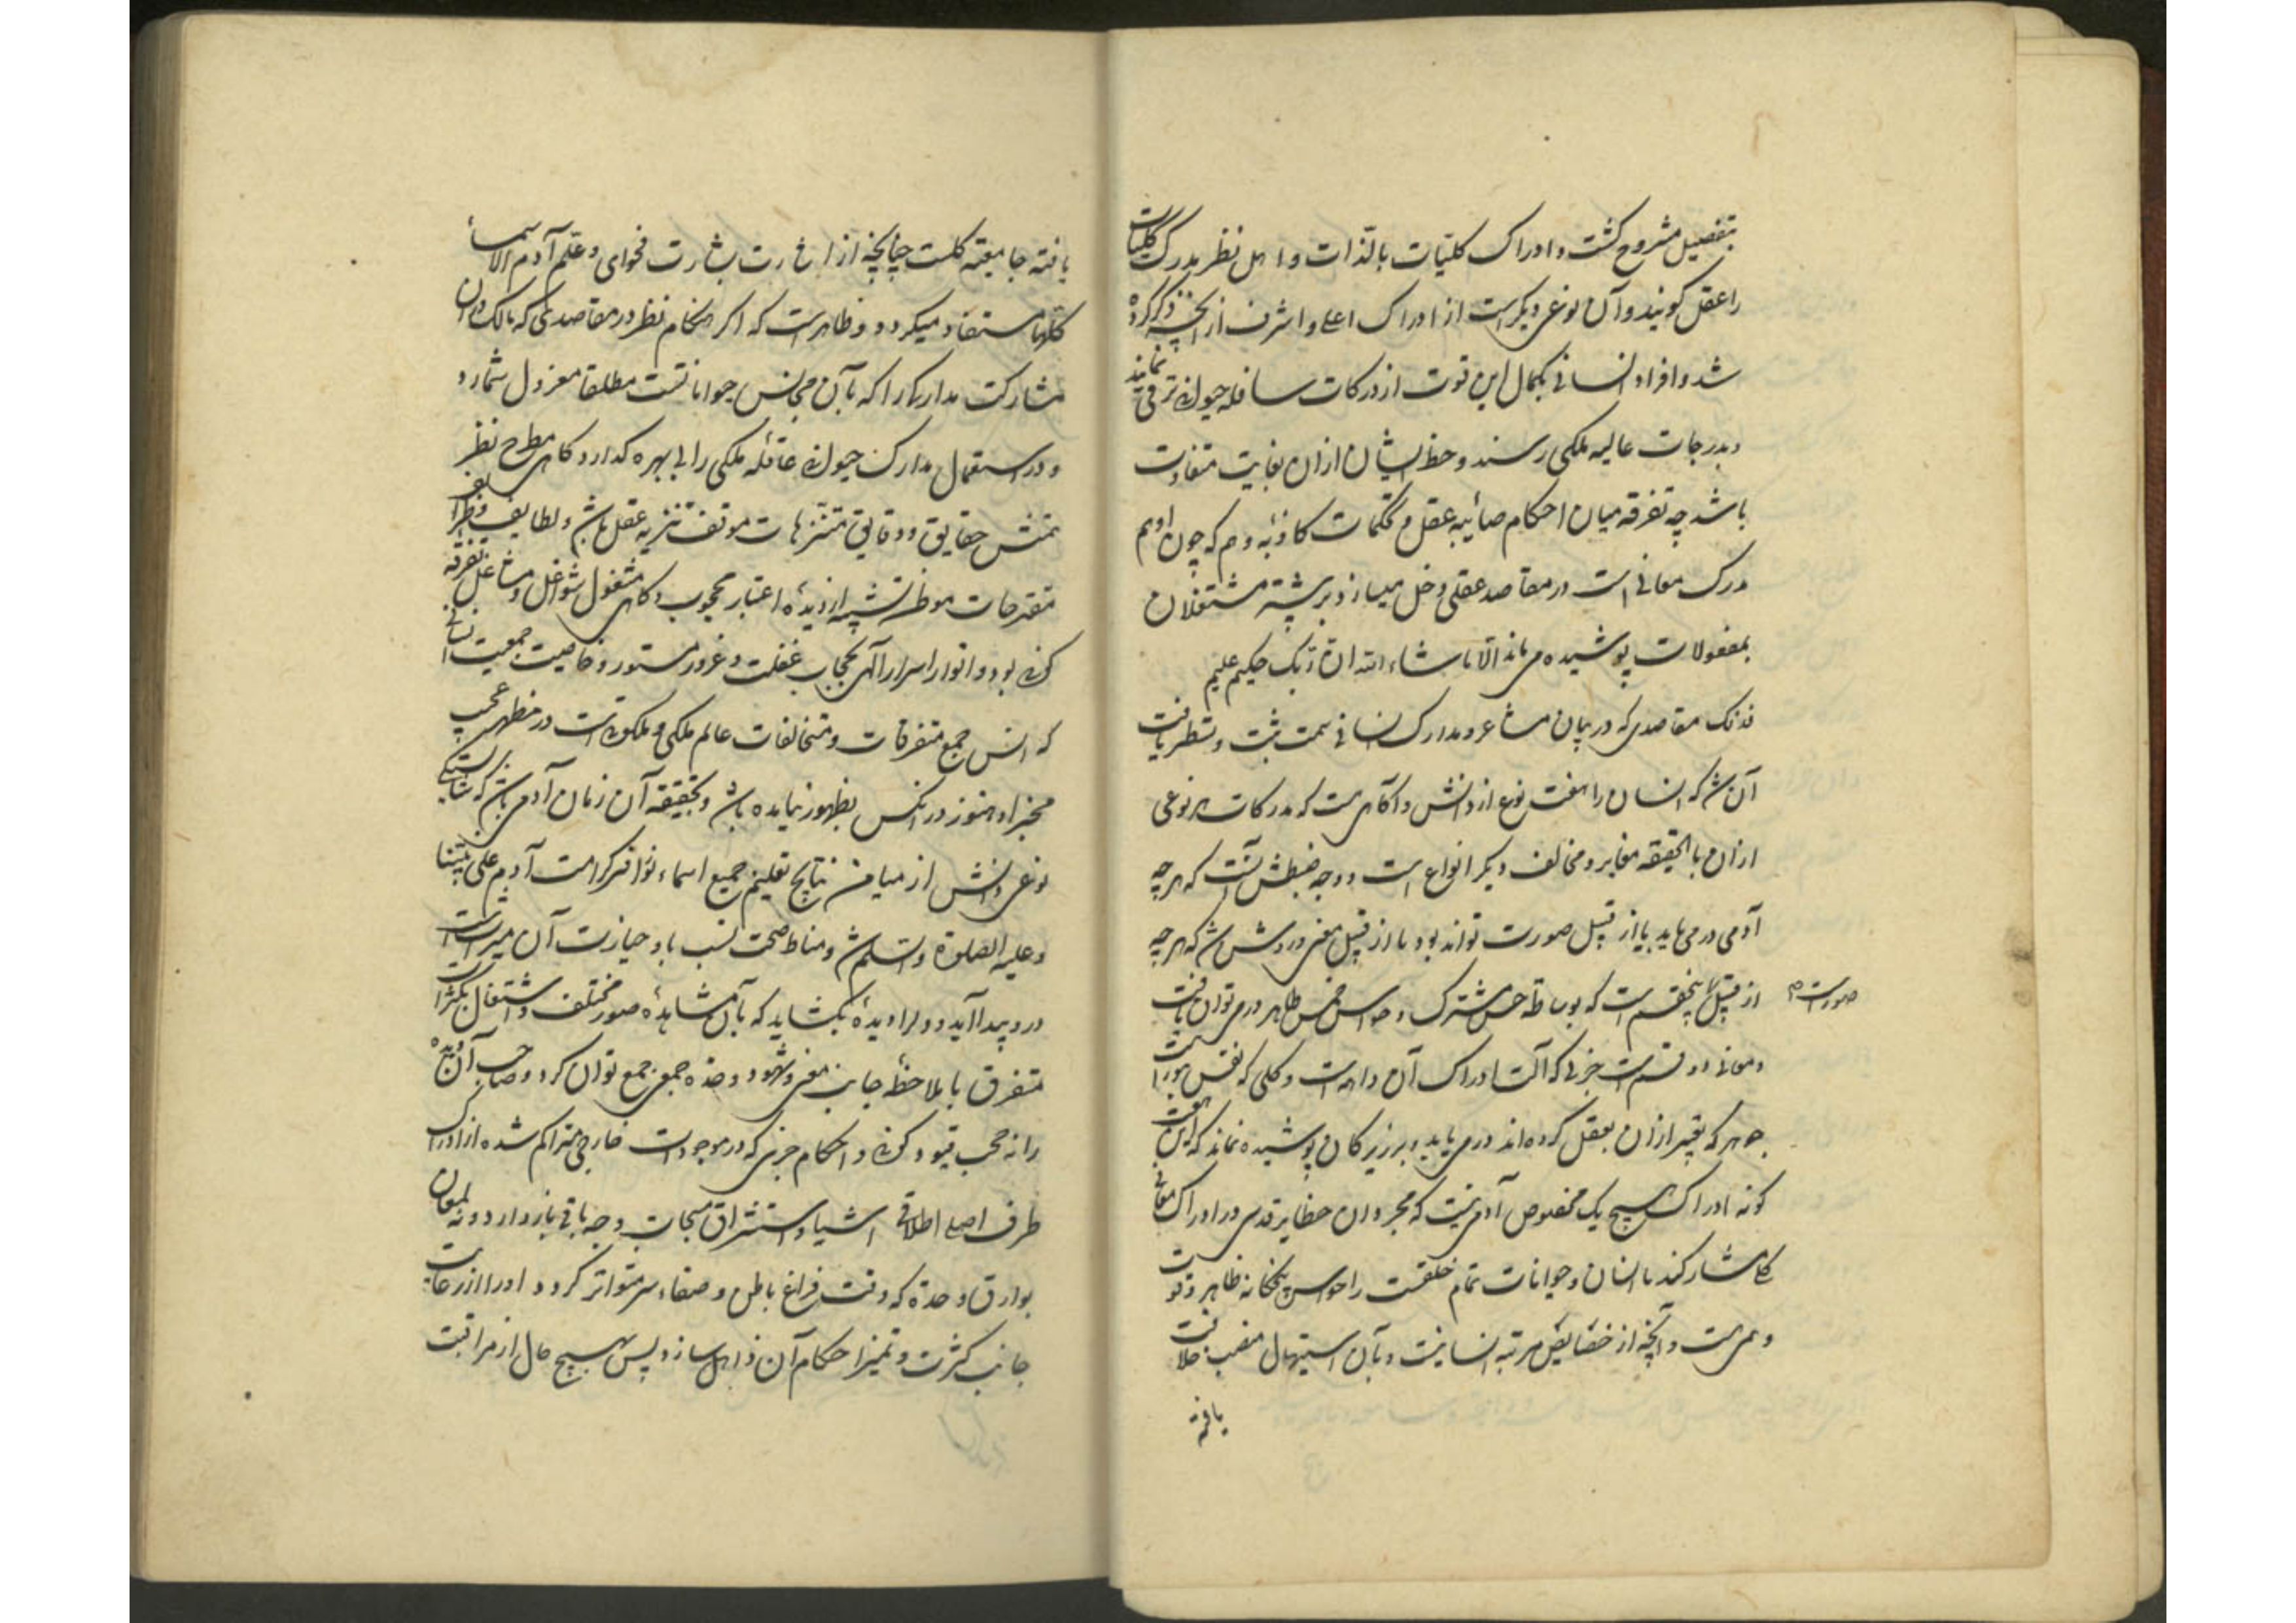 بتفصیل مشروح کشت و ادراک کلیّات بالذّات و اهل نظر مدرک کلیات
را عقل کویند و آن نوعی دیکر است از ادراک اعلی و اشرف از آنچه ذکر کرده
شد و افراد انسانی بکمال این قوت از درکات سافله حیوانی ترقی نمایند
و بدرجات عالیه ملکی رسند و حظ ایشان ازان بغایت متفاوت
باشد چه تفرقه میان احکام صائبه عقل و تحکمات کاذبه وهم که چون او هم
مدرک معانی است در مقاصد عقلی دخل میسازد بر بیشتر مشتغلان
بمعقولات پوشیده می ماند الّا ما شاء الله ان ربک حکیم علیم
فذلک مقاصدی که در بیان مشاعر و مدارک انسانی سمت ثبت و تسطیر یافت
آن شد که انسان را هفت نوع از دانش و آکاهی هست که مدرکات هر نوعی
ازان بالحقیقه مغایر و مخالف دیکر انواع است و وجه ضبطش آنست که هر چه
آدمی در می یابد یا از قبیل صورت تواند بود یا از قبیل معنی و روشن شد که هر چه
از قبیل پنج قسم است که بوساطه حس مشترک و حواس خمس ظاهر در می توان یافت
صورتست
و معانی دو قسم است جزئی که آلت ادراک آن واهمه است و کلی که نفس بی آلت
جوهر که تعبیر ازان بعقل کرده اند در می یابد و بر زیرکان پوشیده نماند که این هفت
کونه ادراک هیچ یک مخصوص آدمی نیست که مجردان حظایر قدس در ادراک معانی
کلی مشارکند با انسان و حیوانات تمام خلقت را حواس پنجکانه ظاهر و قوت
وهم هست و آنچه از خصایص مرتبه انسانیت و بآن استیهال منصب خلافت
یافته
یافته جامعیّه کلست چنانچه از اشارت بشارت فحوای و علّم آدم الاسماء
کلّها مستفاد میکردد و ظاهر است که اکر هنکام نظر در مقاصد کلی که بالک دان
مشارکت مدارکی را که بآن مجانس حیواناتست مطلقا معزول شمارد
و در استعمال مدارک حیوانی عاقلّه ملکی را بی بهره کذارد کاهی مطرح نظر
حقایق و دقایق متنزهات موقف تنزیه عقل باشد و لطایف و ظرایف
مقترحات موطن تشبیه از دیده اعتبار محجوب و کاهی مشغول شواغل و مشاعل تفرقه
کونی بود و انوار اسرار الهی بحجاب غفلت و غرور مستور و خاصیت جمعیت انسانی
که انس جمع متفرقات و متخالفات عالم ملکی و ملکوتی است در مظهر عجیب
مخبر او هنوز در انکس بظهور نیامده باشد و بحقیقه آن زمان آدمی باشد که شایستکی
نوعی دانش از میامن نتایج تعلیم جمیع اسماء کرامت آدم علی نبیّنا
و علیه الصلوة و السلم شد و مناط صحت نسب باو حیازت آن میراث است
در و پیدا آید و دل او دیده بکشاید که بآن مشاهده صور مختلف و اشتغال بکثرات
متفرق با ملاحظه جانب معنی و شهود وحده جمعی جمع توان کرد و صاحب آن دیده
را نه حجب قیود کونی و احکام جزئی که در موجودات خارجی متراکم شده از ادراک
طرف اصلی اطلاقی اشیا و استشراق سبحات وجه باقی باز دارد و نه لمعان
بوارق وحدة که وقت فراغ باطن و صفاء سر متواتر کردد او را از رعایت
جانب کثرت و تمیز احکام آن ذاهل سازد پس هیچ حال از مراقبت